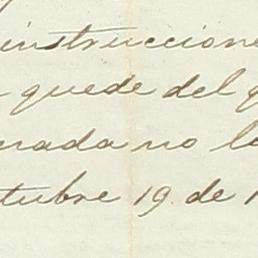 instruccione
quede del q
nada no le
tubre 19. de 1